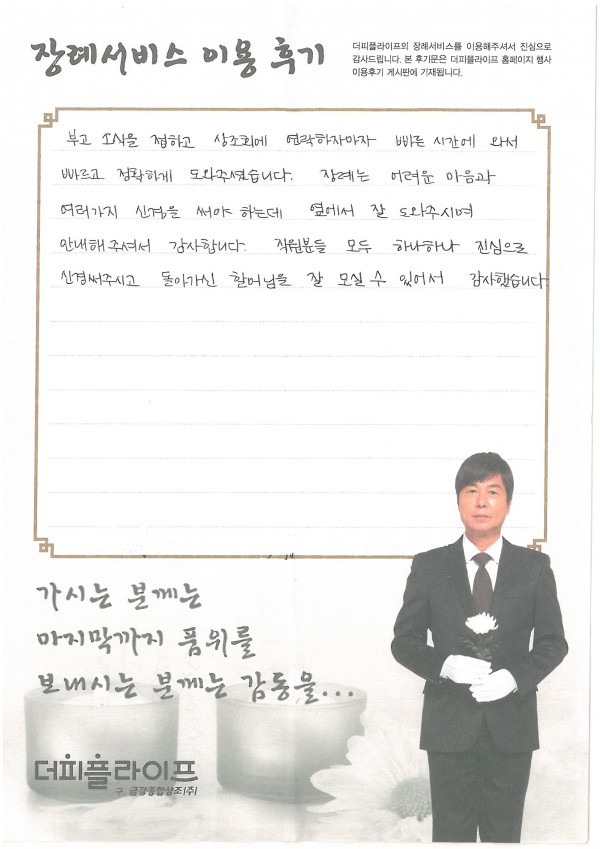 장례서비스 이용 후기
더피플라이프의 장례서비스를 이용해주셔서 진심으로
감사드립니다. 본 후기문은 더피플라이프 홈페이지 행사
이용후기 게시판에 기재됩니다.
부고 소식을 접하고 상조회에 연락하자마자 빠른 시간에 와서
빠르고 정확하게 도와주셨습니다. 장례는 어려운 마음과
여러가지 신경을 써야 하는데 옆에서 잘 도와주시며
안내해주셔서 감사합니다. 직원분들 모두 하나하나 진심으로
신경써주시고 돌아가신 할머님을 잘 모실 수 있어서 감사했습니다
가시는 분께는
마지막까지 품위를
보내시는 분께는 감동을...
더피플라이프
구. 금강종합상조(주)